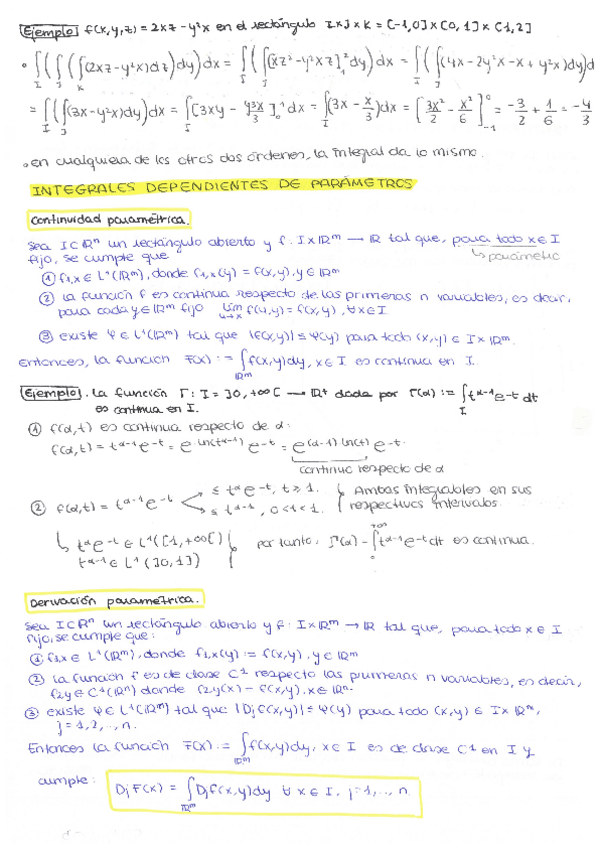 Ejemplo f(x,y,z) = 2xz - y²x en el rectángulo I×J×K = [-1,0]×[0,1]×[1,2]
• ∫_I(∫_J(∫_K(2xz-y²x)dz)dy)dx = ∫_I(∫_J[xz²-y²xz]₁²dy)dx = ∫_I(∫_J(4x-2y²x-x+y²x)dy)d
= ∫_I(∫_J(3x-y²x)dy)dx = ∫_I[3xy - y³x/3]₀¹dx = ∫_I(3x - x/3)dx = [3x²/2 - x²/6]₋₁⁰ = -3/2 + 1/6 = -4/3
• en cualquiera de los otros dos órdenes, la integral da lo mismo.
INTEGRALES DEPENDIENTES DE PARÁMETROS
Continuidad paramétrica.
Sea I⊂ℝⁿ un rectángulo abierto y f: I×ℝᵐ → ℝ tal que, para todo x∈I
fijo, se cumple que
parámetro
① f₁,x ∈ L¹(ℝᵐ), donde f₁,x(y) = f(x,y), y∈ℝᵐ
② la función f es continua respecto de las primeras n variables, es decir,
para cada y∈ℝᵐ fijo lim_{u→x} f(u,y) = f(x,y), ∀x∈I
③ existe φ∈L¹(ℝᵐ) tal que |f(x,y)| ≤ φ(y) para todo (x,y)∈ I×ℝᵐ.
Entonces, la función F(x) := ∫_{ℝᵐ} f(x,y)dy, x∈I es continua en I.
Ejemplo. La función Γ: I = ]0,+∞[ → ℝ⁺ dada por Γ(α) := ∫_I t^{α-1}e^{-t}dt
es continua en I.
① f(α,t) es continua respecto de α:
f(α,t) = t^{α-1}e^{-t} = e^{ln(t^{α-1})} e^{-t} = e^{(α-1)ln(t)} e^{-t}.
continuo respecto de α
② f(α,t) = t^{α-1}e^{-t} ≤ t^α e^{-t}, t≥1. Ambas integrables en sus
≤ t^{α-1}, 0<t<1. respectivos intervalos.
t^α e^{-t} ∈ L¹([1,+∞[) por tanto, Γ(α) = ∫₀^{+∞} t^{α-1}e^{-t}dt es continua.
t^{α-1} ∈ L¹(]0,1])
Derivación paramétrica.
Sea I⊂ℝⁿ un rectángulo abierto y f: I×ℝᵐ → ℝ tal que, para todo x∈I
fijo, se cumple que:
① f₁,x ∈ L¹(ℝᵐ), donde f₁,x(y) := f(x,y), y∈ℝᵐ
② la función f es de clase C¹ respecto las primeras n variables, es decir,
f₂,y ∈ C¹(ℝⁿ) donde f₂,y(x) = f(x,y), x∈ℝⁿ.
③ existe φ∈L¹(ℝᵐ) tal que |Djf(x,y)| ≤ φ(y) para todo (x,y)∈ I×ℝᵐ,
j=1,2,..,n.
Entonces la función F(x) := ∫_{ℝᵐ} f(x,y)dy, x∈I es de clase C¹ en I y
cumple: DjF(x) = ∫_{ℝᵐ} Djf(x,y)dy ∀ x∈I, j=1,..,n